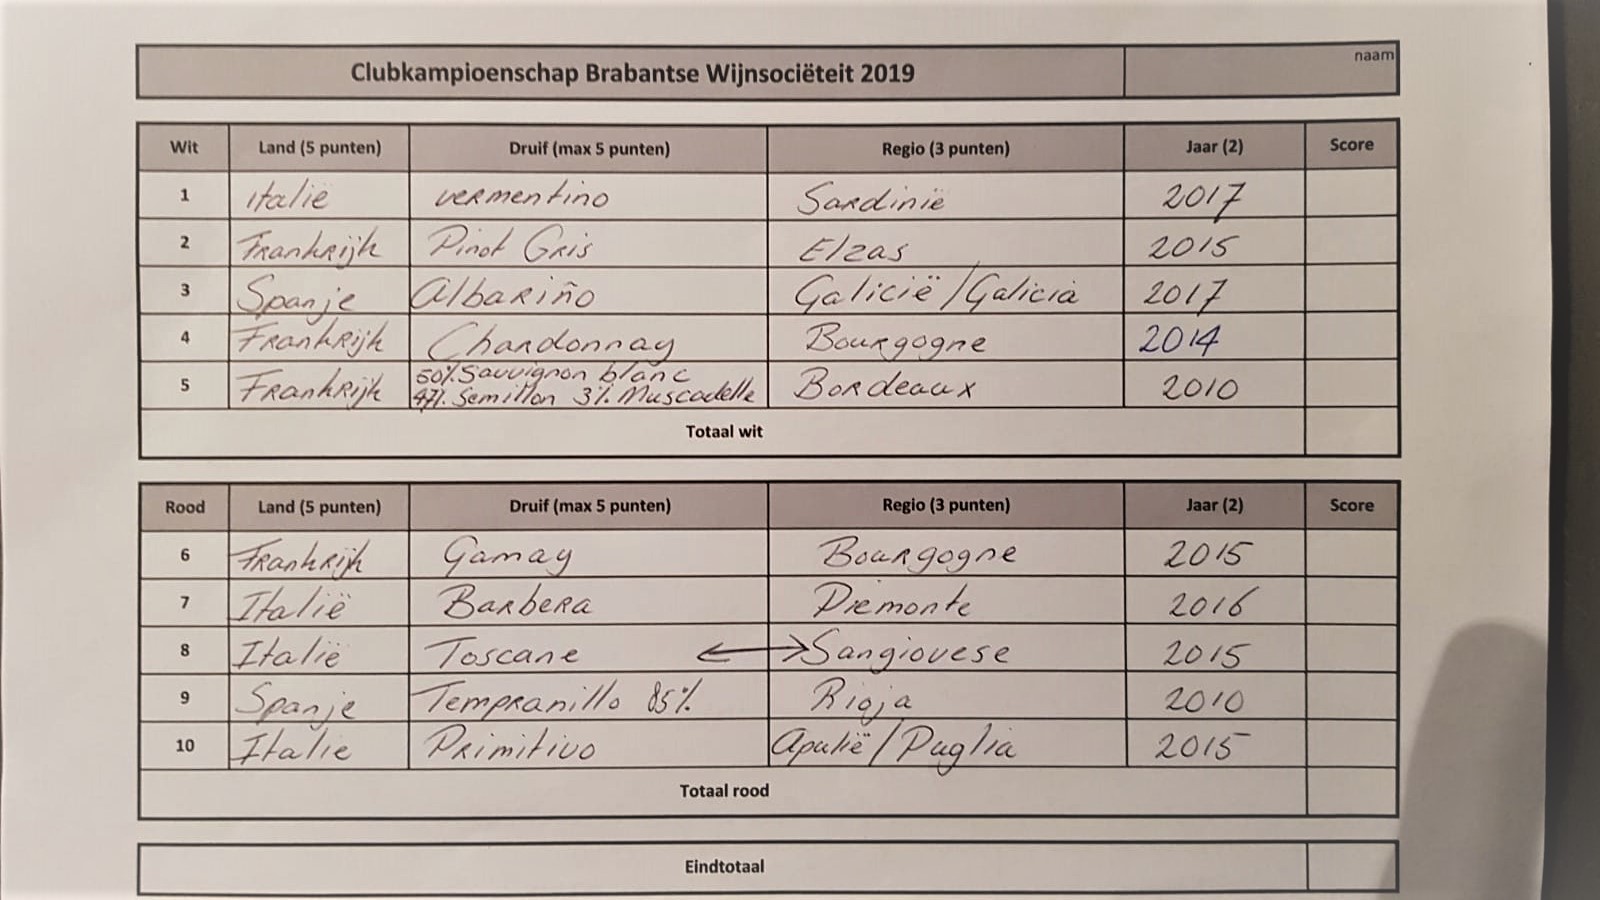 Clubkampioenschap Brabantse Wijnsociëteit 2019 naam
Wit Land (5 punten) Druif (max 5 punten) Regio (3 punten) Jaar (2) Score
1 Italië vermentino Sardinië 2017
2 Frankrijk Pinot Gris Elzas 2015
3 Spanje Albariño Galicië/Galicia 2017
4 Frankrijk Chardonnay Bourgogne 2014
5 Frankrijk 50% Sauvignon blanc Bordeaux 2010
47% Semillon 3% Muscadelle
Totaal wit
Rood Land (5 punten) Druif (max 5 punten) Regio (3 punten) Jaar (2) Score
6 Frankrijk Gamay Bourgogne 2015
7 Italië Barbera Piemonte 2016
8 Italië Toscane ↔ Sangiovese 2015
9 Spanje Tempranillo 85% Rioja 2010
10 Italie Primitivo Apulië/Puglia 2015
Totaal rood
Eindtotaal